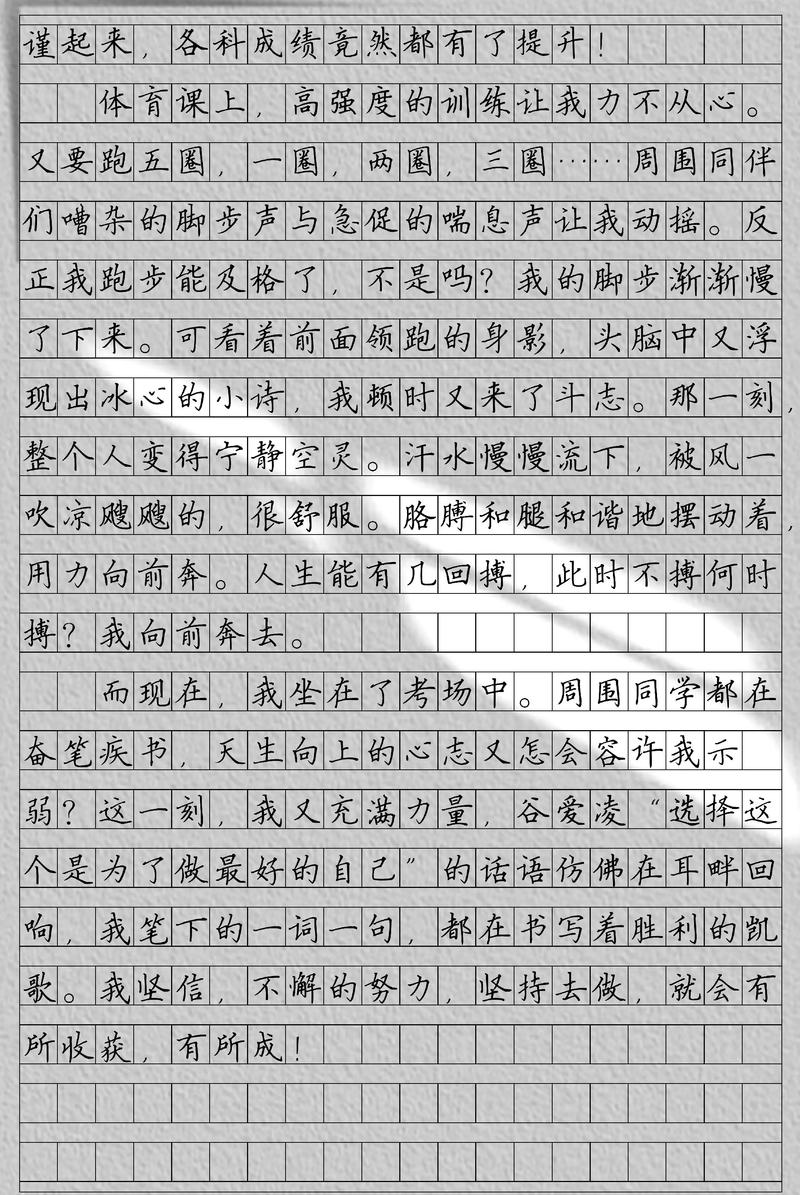 谨起来，各科成绩竟然都有了提升！
体育课上，高强度的训练让我力不从心。
又要跑五圈，一圈，两圈，三圈……周围同伴
们嘈杂的脚步声与急促的喘息声让我动摇。反
正我跑步能及格了，不是吗？我的脚步渐渐慢
了下来。可看着前面领跑的身影，头脑中又浮
现出冰心的小诗，我顿时又来了斗志。那一刻，
整个人变得宁静空灵。汗水慢慢流下，被风一
吹凉飕飕的，很舒服。胳膊和腿和谐地摆动着，
用力向前奔。人生能有几回搏，此时不搏何时
搏？我向前奔去。
而现在，我坐在了考场中。周围同学都在
奋笔疾书，天生向上的心志又怎会容许我示
弱？这一刻，我又充满力量，谷爱凌“选择这
个是为了做最好的自己”的话语仿佛在耳畔回
响，我笔下的一词一句，都在书写着胜利的凯
歌。我坚信，不懈的努力，坚持去做，就会有
所收获，有所成！